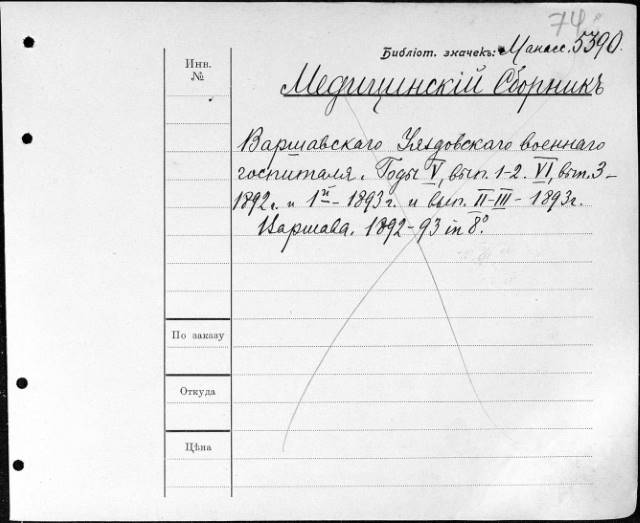 74
Библіот. значекъ: Манасс. 5390.
Инв.
№
Медицинскій Сборникъ
Варшавскаго Уяздовскаго военнаго
госпиталя. Годы V, вып. 1-2. VI, вып. 3-
1892г. и 1й - 1893г. и вып. II-III - 1893г.
Варшава. 1892-93 in 8°.
По заказу
Откуда
Цѣна